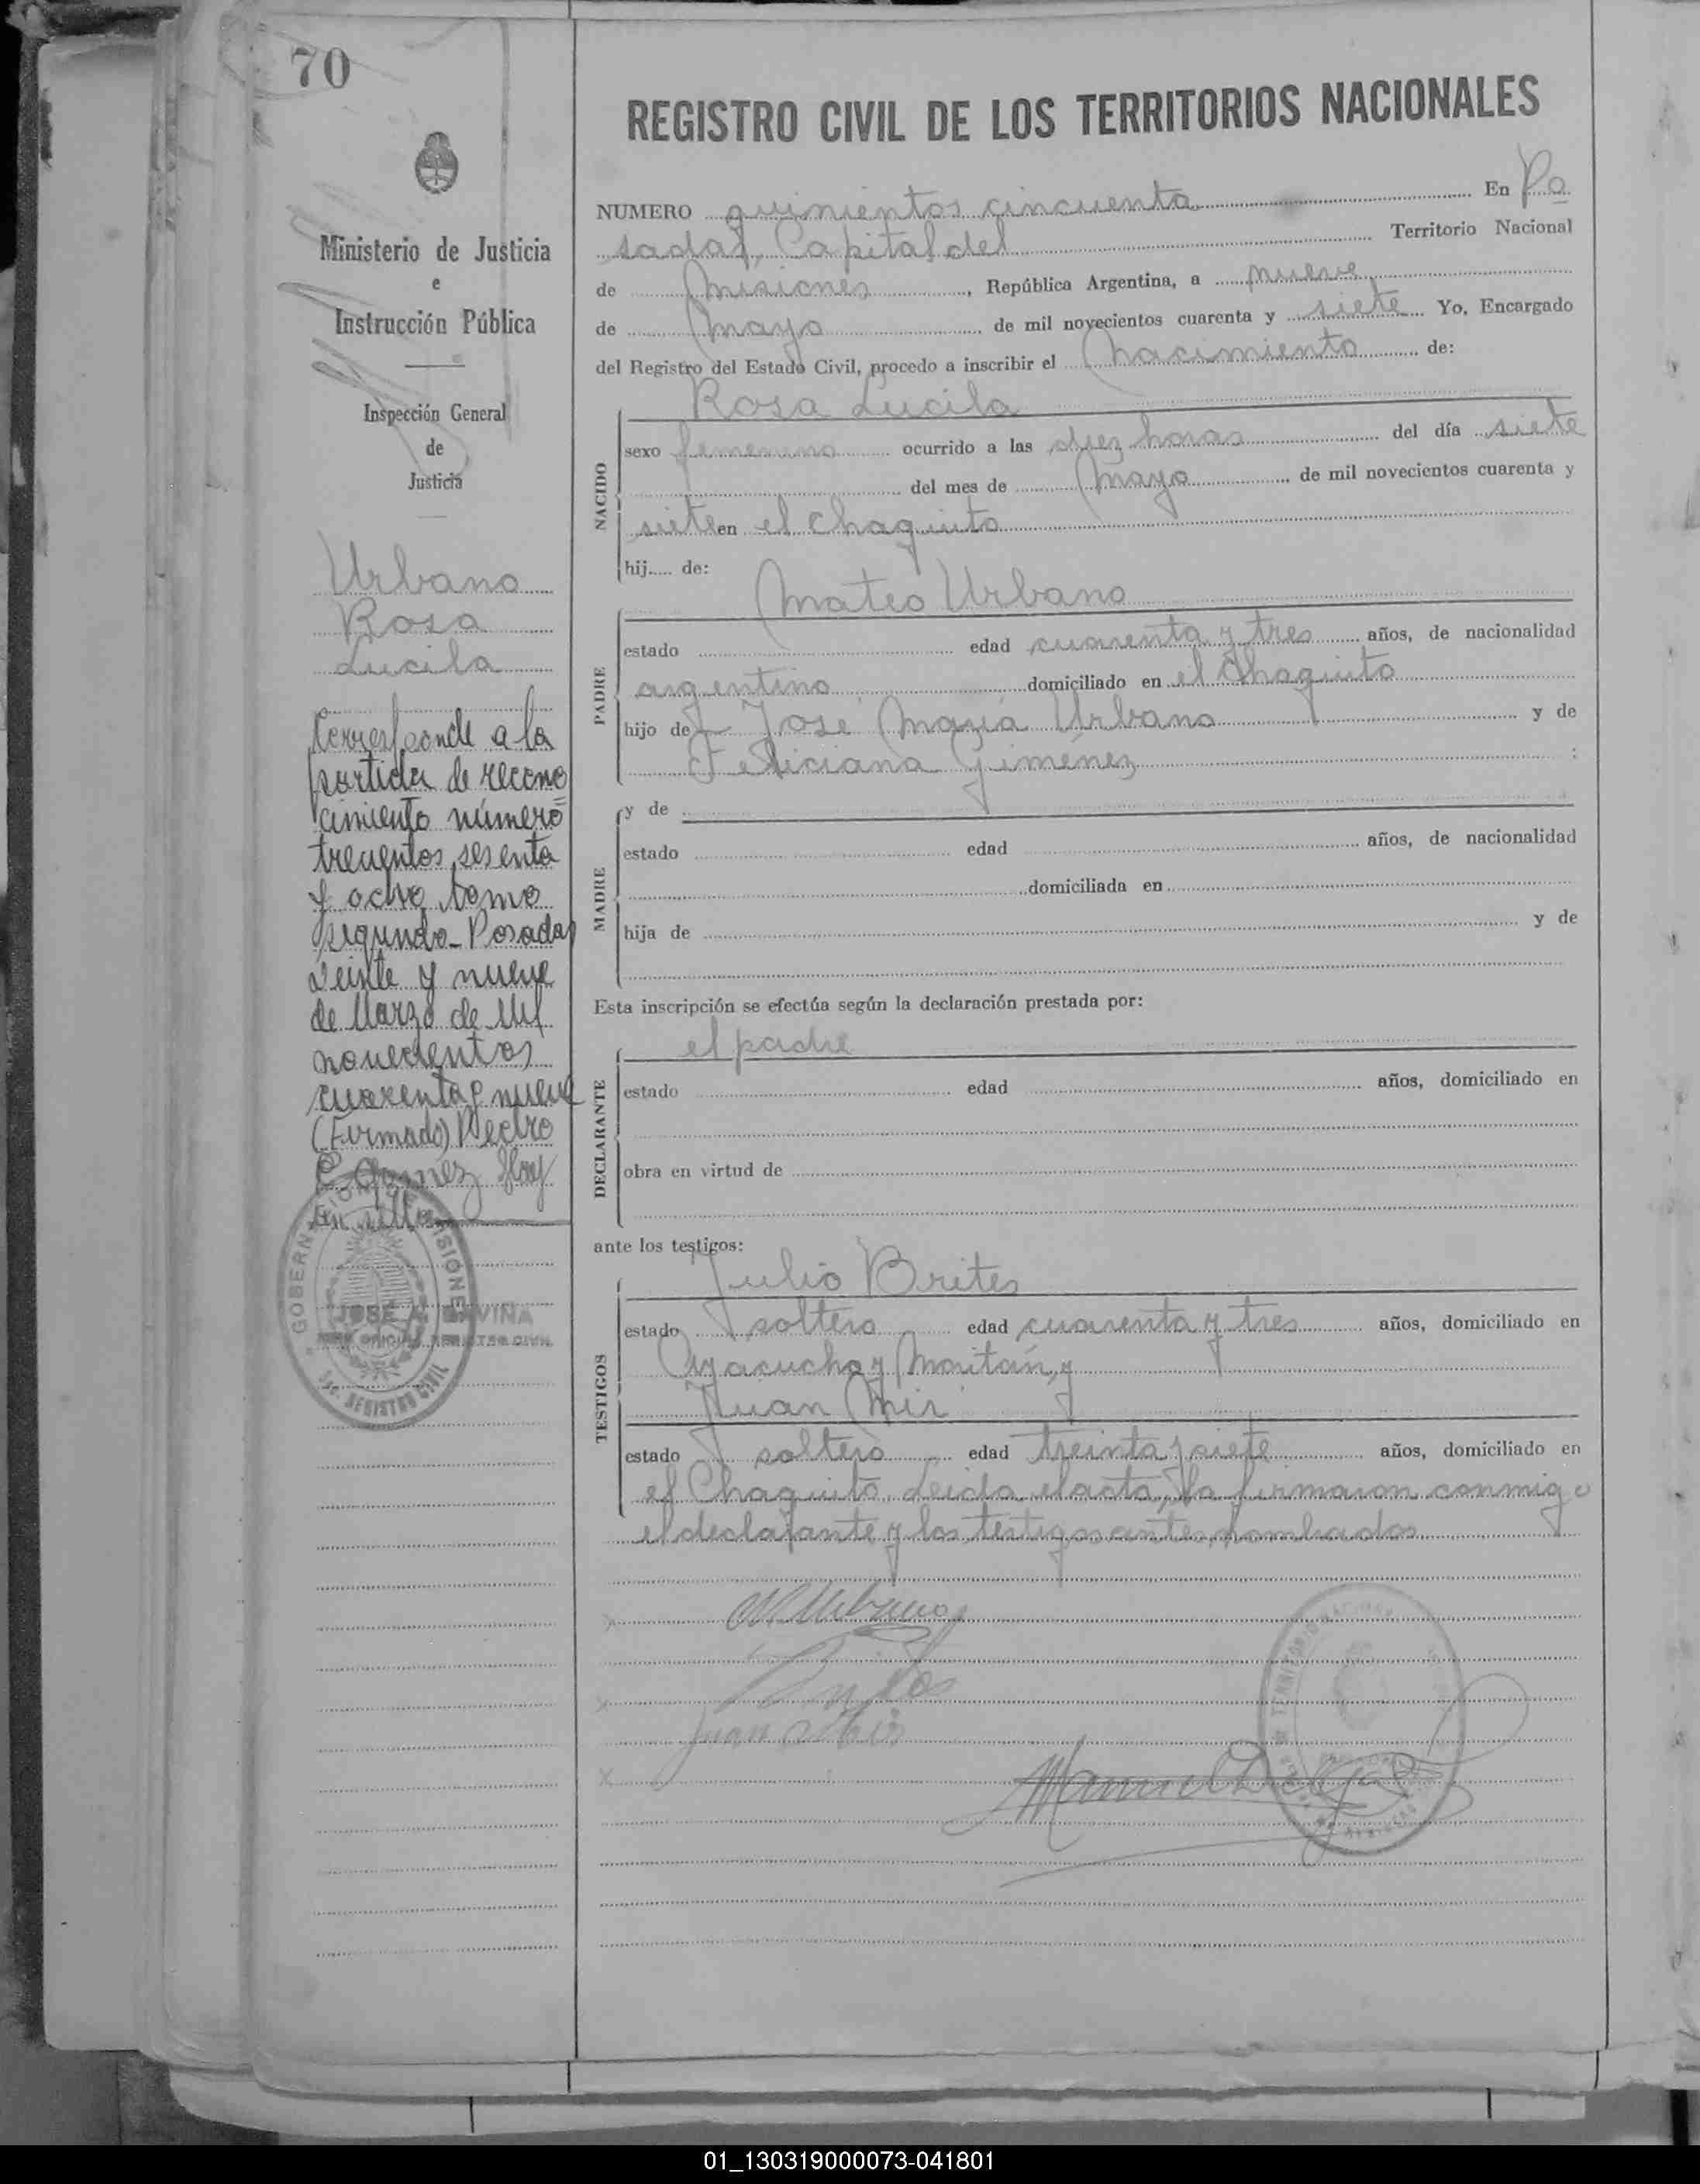 70
Ministerio de Justicia
e
Instrucción Pública
Inspección General
de
Justicia
Urbano
Rosa
Lucila
Corresponde a la
partida de recono
cimiento número
trecientos sesenta
y ocho tomo
segundo - Posadas
veinte y nueve
de Marzo de Mil
novecientos
cuarenta y nueve
(Firmado) Pedro
C. Gomez
GOBERN MISIONES
JOSE A. GAVIÑA
OFICIAL REGISTRO CIVIL
REGISTRO CIVIL
REGISTRO CIVIL DE LOS TERRITORIOS NACIONALES
NUMERO quinientos cincuenta En Po
sadas, Capital del Territorio Nacional
de Misiones, República Argentina, a nueve
de Mayo de mil novecientos cuarenta y siete Yo, Encargado
del Registro del Estado Civil, procedo a inscribir el nacimiento de:
Rosa Lucila
NACIDO
sexo femenino ocurrido a las diez horas del día siete
del mes de Mayo de mil novecientos cuarenta y
siete en el Chaquito
hij de:
Mateo Urbano
PADRE
estado edad cuarenta y tres años, de nacionalidad
argentino domiciliado en el Chaquito
hijo de José María Urbano y de
Feliciana Giménez :
MADRE
y de
estado edad años, de nacionalidad
domiciliada en
hija de y de
Esta inscripción se efectúa según la declaración prestada por:
el padre
DECLARANTE
estado edad años, domiciliado en
obra en virtud de
ante los testigos:
Julio Brites
TESTIGOS
estado soltero edad cuarenta y tres años, domiciliado en
Ayacucho y Moritán, y
Juan Mir
estado soltero edad treinta y siete años, domiciliado en
el Chaquito. Leida el acta, la firmaron conmigo
el declarante y los testigos antes nombrados
M Urbano
Brites
Juan Mir
Manuel
01_130319000073-041801